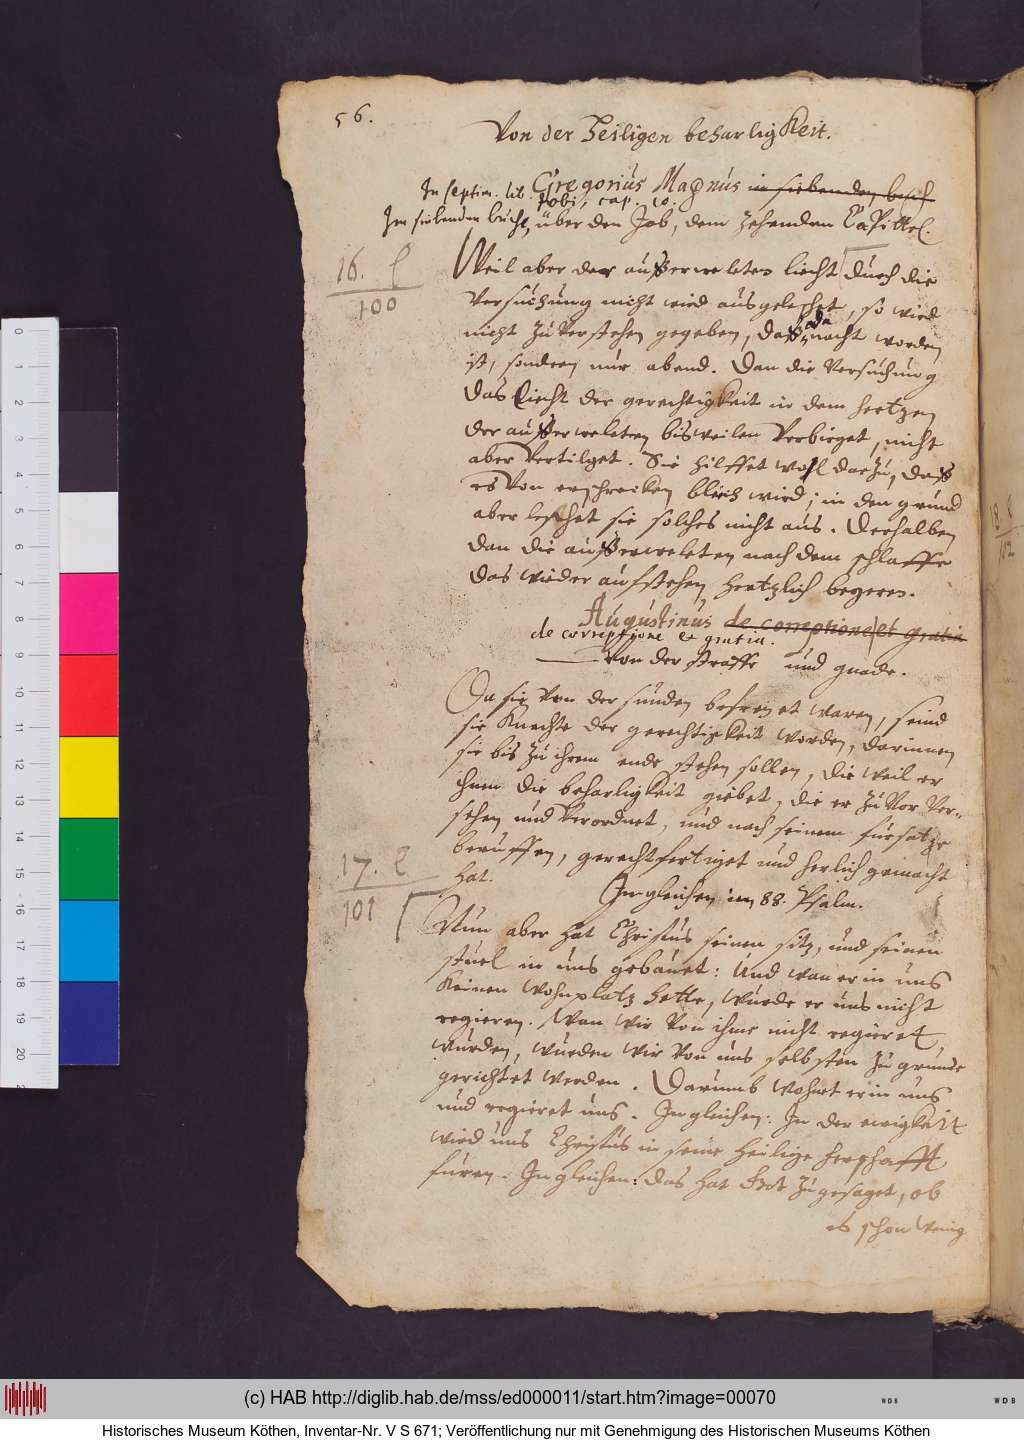 56.
Von der Heiligen beharligkeit.
Gregorius Magnus in siebenden buch
In septim. lib. Jobi, cap. 10.
Im siebenden buche, über den Job, dem zehenden Capittel.
16. l
100
Weil aber der außerweleten liecht durch die
Versuchung nicht wird ausgeleschet, so wird
nicht zu verstehen gegeben, daß es nacht worden
ist, sondern nur abend. Dan die Versuchung
das Liecht der gerechtigkeit in dem hertzen
der außerweleten bisweilen verbirget, nicht
aber vertilget. Sie hilffet wol darzu, daß
es von erschrecken bleich wird; in den grund
aber leschet sie solches nicht aus. Derhalben
dan die außerweleten nach dem schlaffe
das wieder aufstehen hertzlich begeren.
Augustinus de correptione et gratia
de correptione et gratia.
Von der straffe und gnade.
Da sie von der sünden befreyet waren, seind
sie Knechte der gerechtigkeit worden, darinnen
sie bis zu ihrem ende stehen sollen, die weil er
ihnen die beharligkeit giebet, die er zuvor ver-
sehen und verordnet, und nach seinem fürsatze
beruffen, gerechtfertiget und herlich gemacht
hat.
17. l
101
Ingleichen im 88. Psalm.
Nun aber hat Christus seinen sitz, und seinen
stuel in uns gebauet: Und wan er in uns
Keinen wohnplatz hette, würde er uns nicht
regieren. Wan wir von ihme nicht regieret
würden, würden wir von uns selbsten zu grunde
gerichtet werden. Darumb wohnet er in uns
und regieret uns. Ingleichen: In der ewigkeit
wird uns Christus in seine heilige herschafft
füren. Ingleichen: Das hat Got zugesaget, ob
es schon wenig
18 l
112
0
1
2
3
4
5
6
7
8
9
10
11
12
13
14
15
16
17
18
19
20
(c) HAB http://diglib.hab.de/mss/ed000011/start.htm?image=00070
WDB
WDB
Historisches Museum Köthen, Inventar-Nr. V S 671; Veröffentlichung nur mit Genehmigung des Historischen Museums Köthen